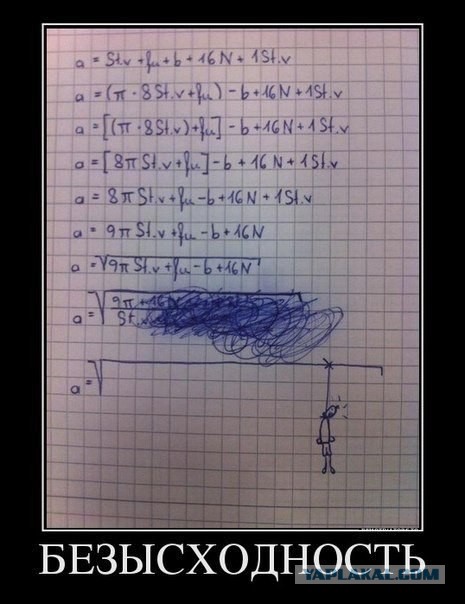 a = St.v + fu + b + 16N + 1St.v
a = (π · 8St.v + fu) - b + 16N + 1St.v
a = [(π · 8St.v) + fu] - b + 16N + 1St.v
a = [8π St.v + fu] - b + 16N + 1St.v
a = 8π St.v + fu - b + 16N + 1St.v
a = 9π St.v + fu - b + 16N
a = √9π St.v + fu - b + 16N
a = √9π + 16N
St.v
a = √
БЕЗЫСХОДНОСТЬ
YAPLAKAL.COM